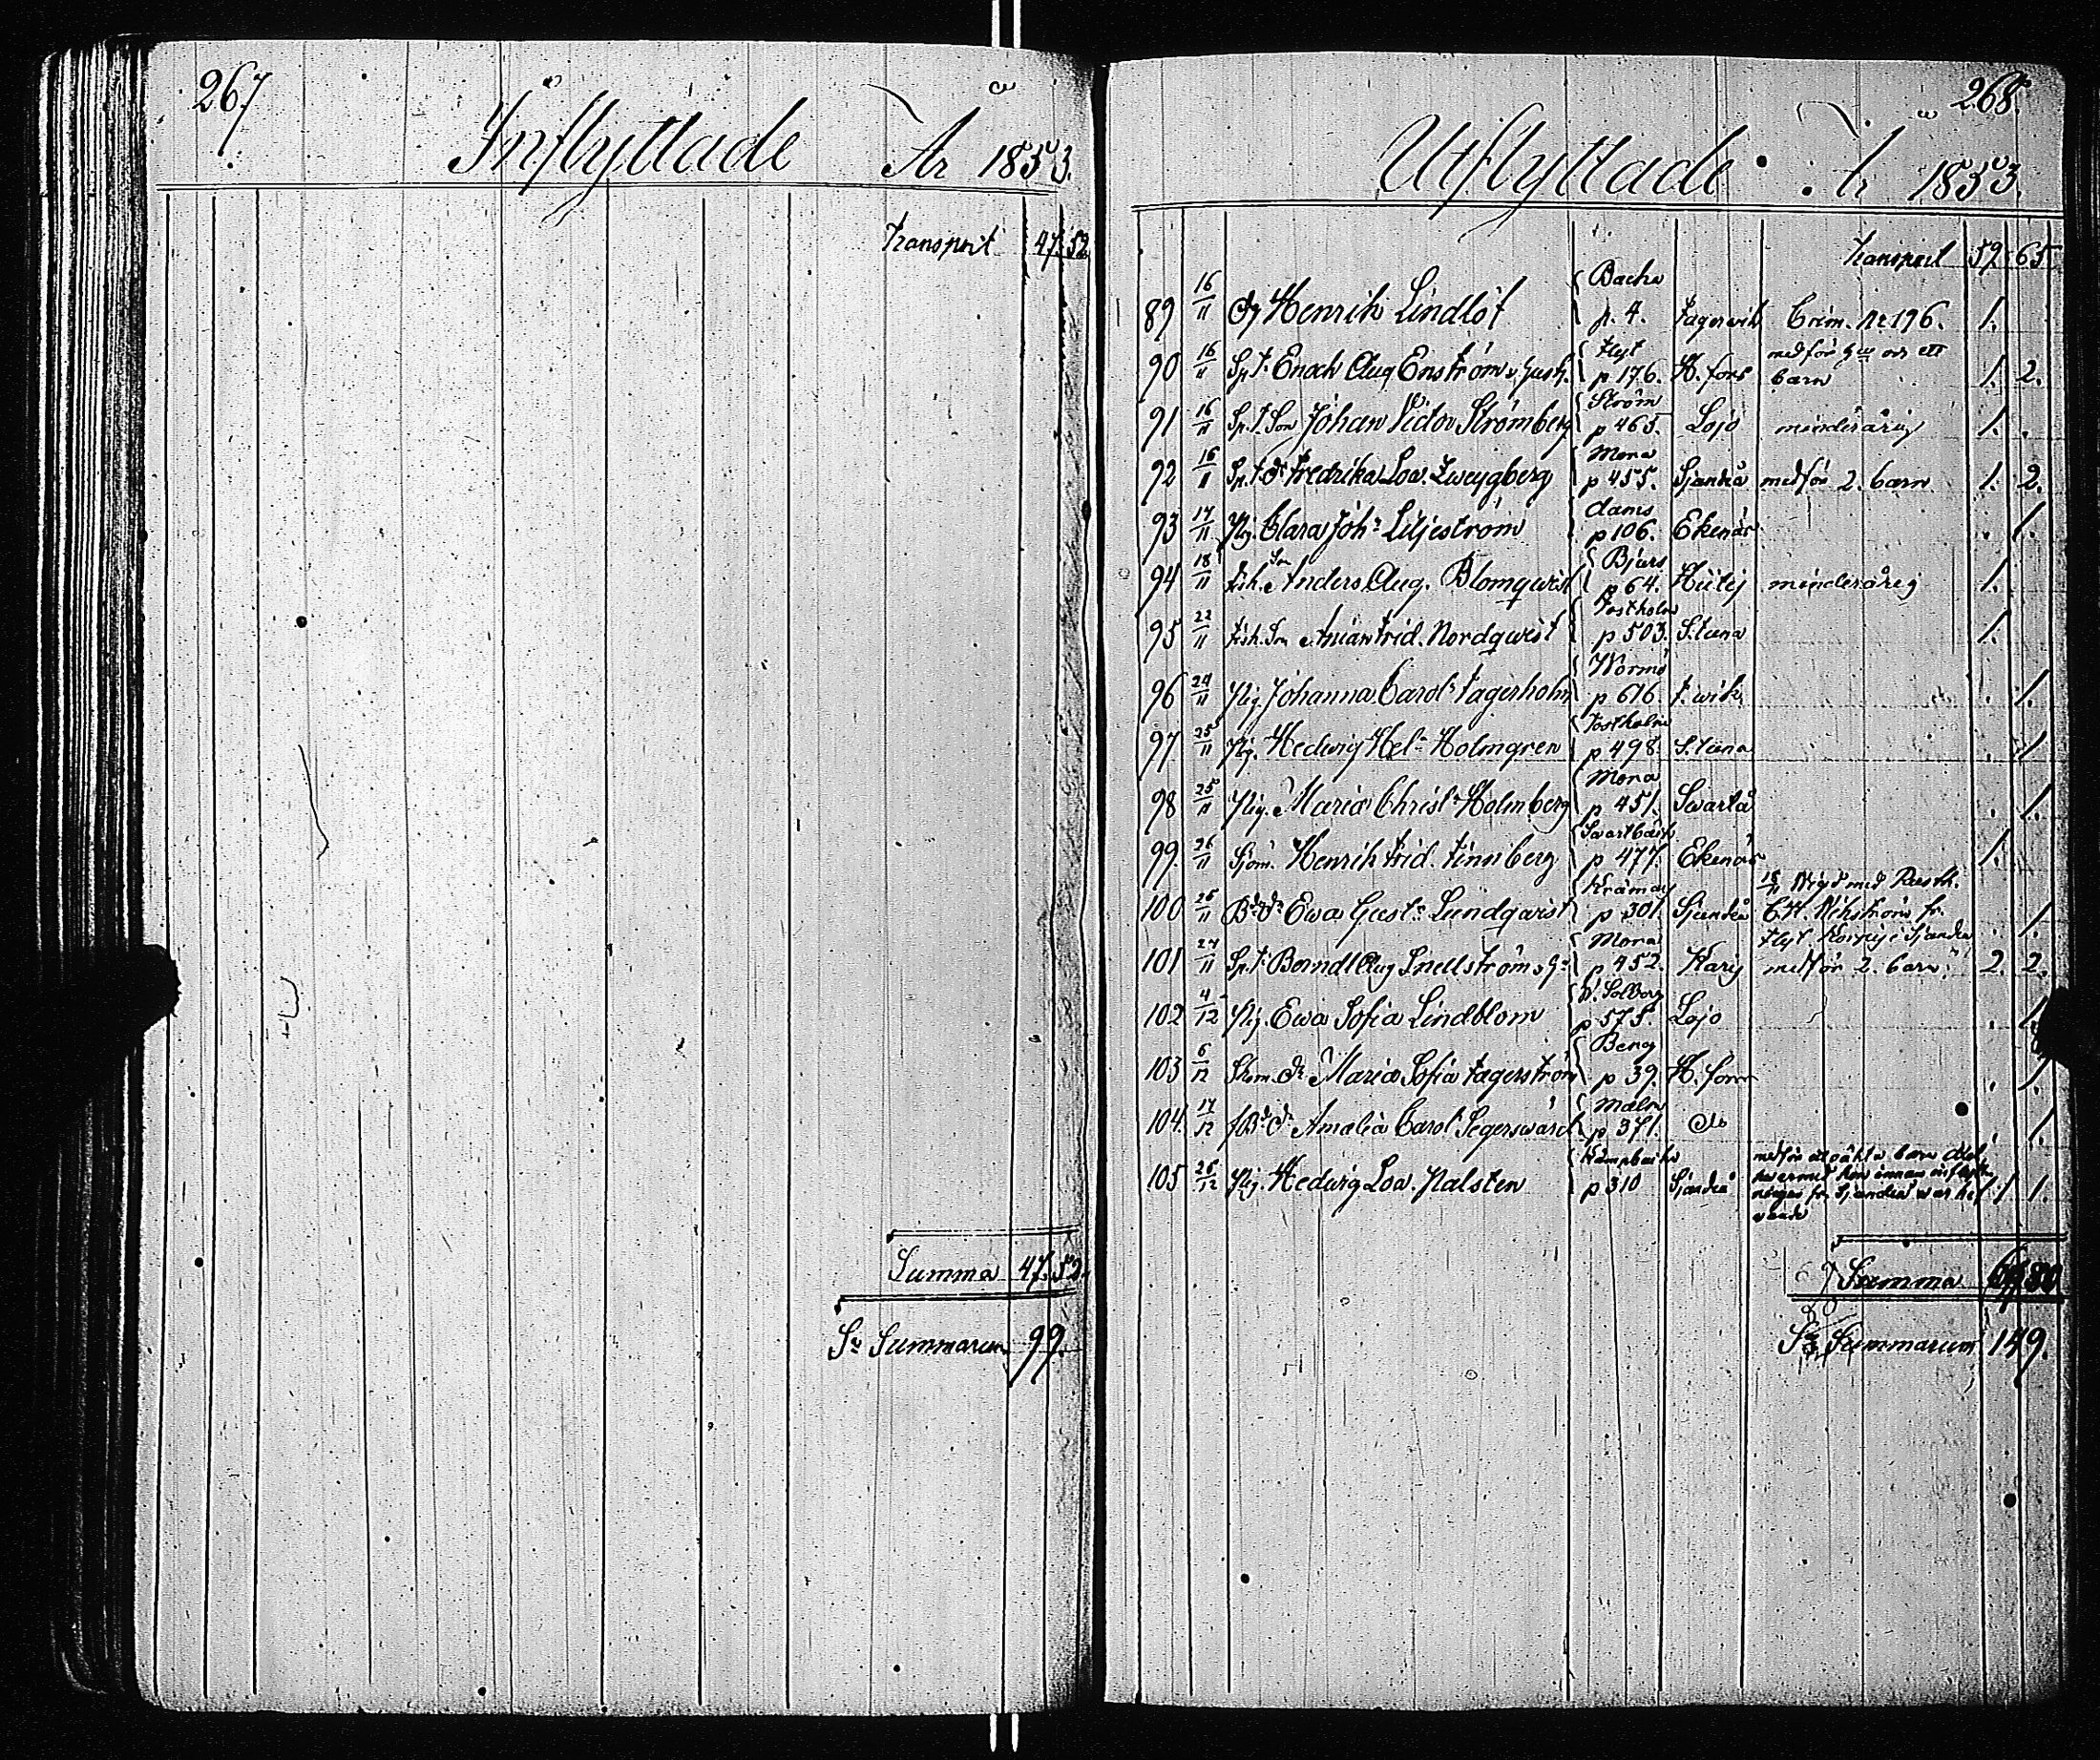 267
Inflyttade År 1853.
Transport 47. 52
Summa 47. 52.
S:a Summarum 99.
268.
Utflyttade År 1853.
Transport 59. 65
Backa
89 16/11 Dg Henrik Lindlöf p. 4. Fagervik Crim. Nr 196. 1.
Flyt medför h:u och ett
90 16/11 Sp.t. Enoch Aug Enström, hust. p 176. H.fors barn 1. 2.
Ström
91 16/11 Sp.t. Son Johan Victor Strömberg p 465. Lojo minderårig 1.
Mona
92 16/11 Sp.t. Dr Fredrika Lov. Zweygberg p 455. Sjundeå medför 2. barn 1. 2.
dams
93 17/11 Pig. Clara Joh:a Liljeström p 106. Ekenäs 1.
Bjars
94 18/11 Fish. Son Anders Aug. Blomqwist p 64. Hiitis minderårig 1.
Fostholm
95 22/11 Fish. Son Amian Frid. Nordqwist p 503. S.tuna 1.
Wormö
96 24/11 Pig. Johanna Carol:a Fagerholm p 616. F.wik 1.
Fostholm
97 25/11 Pig. Hedwig Hel:a Holmgren p 498. S.tuna 1.
Mona
98 25/11 Pig. Maria Christ:a Holmberg p 451. Swartå 1.
Swartbäck
99. 26/11 Sjöm. Henrik Frid. Finnberg p 477. Ekenäs 1.
18/11 Wigd med Rusth.
100 26/11 B:de Dr Ewa Gust:a Lundqvist p 301. Sjundeå C.H. Wikström fr.
Mona Flyt Sjundeå 1.
101 27/11 Sp.t. Berndt Aug Snellström, h:u p 452. Karis medför 2. barn. 2. 2.
W. Solberg
102 4/12 Pig. Ewa Sofia Lindblom p 575. Lojo 1.
Beng
103 6/12 Skom. Dr Maria Sofia Fagerström p 39. H.fors 1.
Malm
104. 17/12 Amalia Carol. Segerswärd p 371. Do 1.
medför oäkta barn
105 26/12 Pig. Hedwig Lov. Malsten p 310 Sjundeå innan inflytt-
ningen fr. Sjundeå war ha- 1 1.
vande
Summa 69 80
S:a Summarum 149.